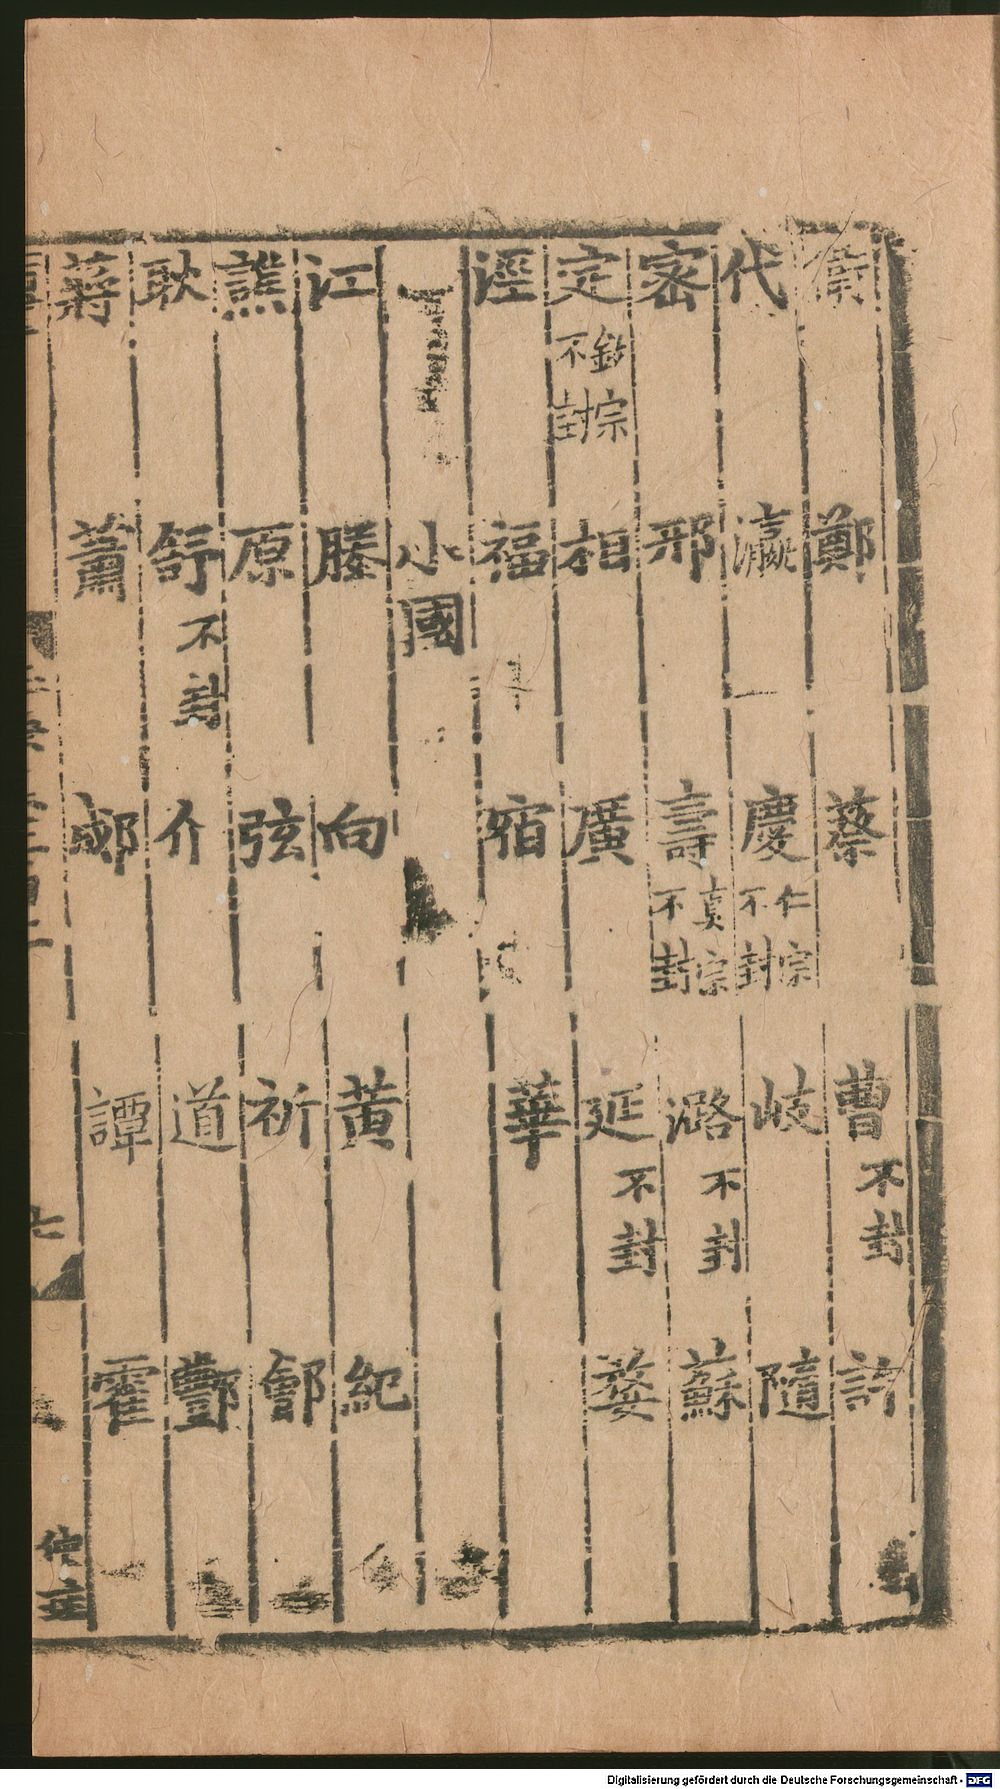 衛 鄭 蔡 曹不封 許
代 瀛 慶仁宗不封 岐 隨
密 邢 壽真宗不封 潞不封 蘇
定欽宗不封 相 廣 延不封 婺
涇 福 宿 華
小國
江 滕 向 黃 紀
譙 原 弦 祈 鄶
耿 舒不封 介 道 酆
蔣 蕭 郕 譚 霍
Digitalisierung gefördert durch die Deutsche Forschungsgemeinschaft - DFG